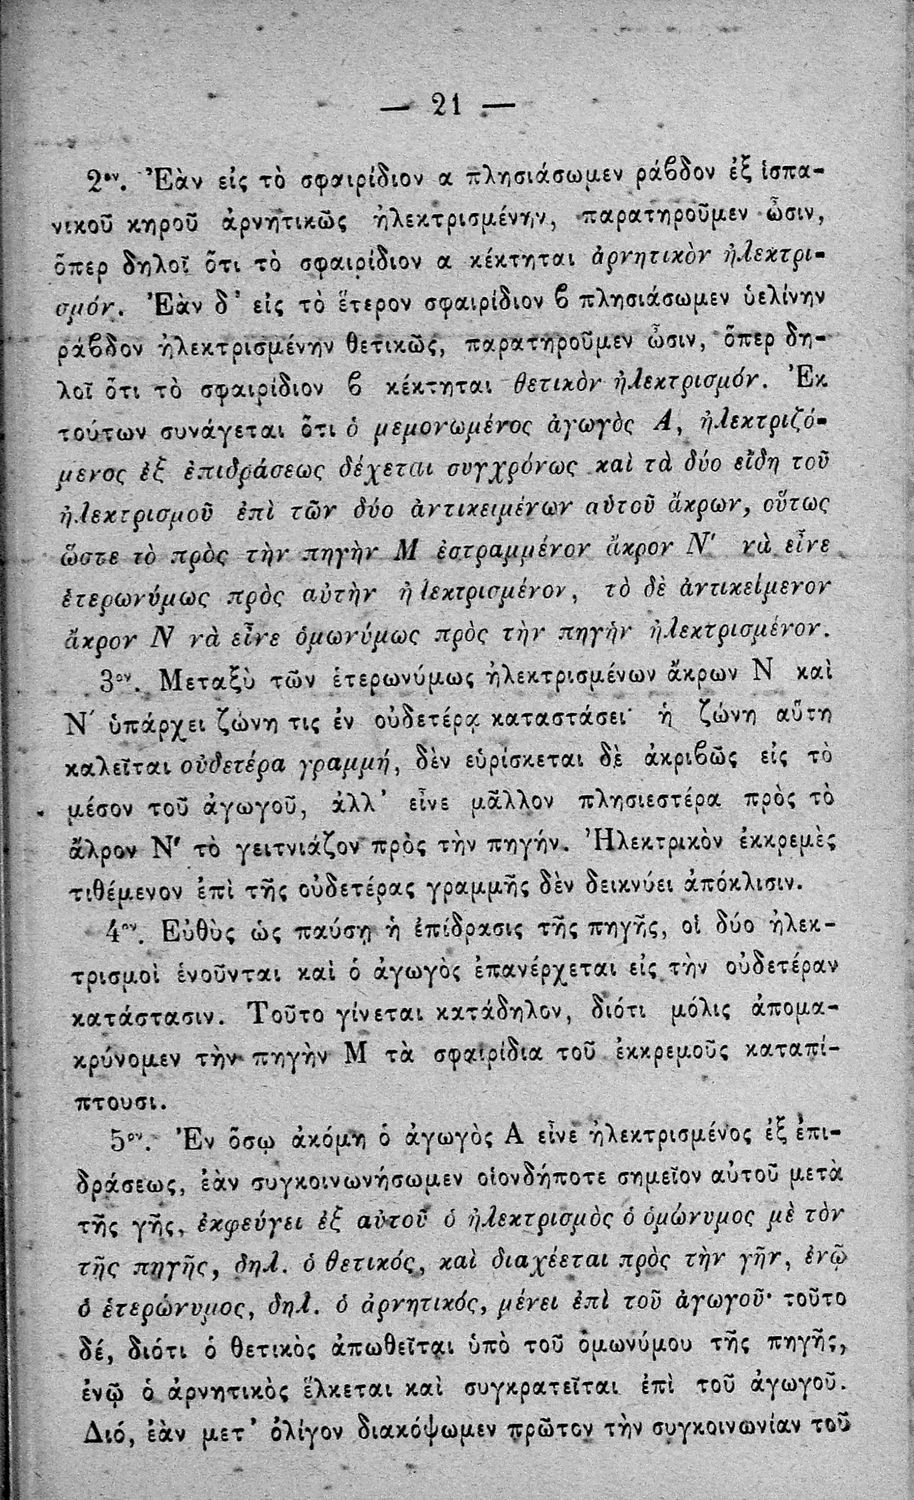 — 21 —
2ον. Ἐὰν εἰς τὸ σφαιρίδιον α πλησιάσωμεν ράβδον ἐξ ἱσπα-
νικοῦ κηροῦ ἀρνητικῶς ἠλεκτρισμένην, παρατηροῦμεν ὦσιν,
ὅπερ δηλοῖ ὅτι τὸ σφαιρίδιον α κέκτηται ἀρνητικὸν ἠλεκτρι-
σμόν. Ἐὰν δ᾽ εἰς τὸ ἕτερον σφαιρίδιον β πλησιάσωμεν ὑελίνην
ράβδον ἠλεκτρισμένην θετικῶς, παρατηροῦμεν ὦσιν, ὅπερ δη-
λοῖ ὅτι τὸ σφαιρίδιον β κέκτηται θετικὸν ἠλεκτρισμόν. Ἐκ
τούτων συνάγεται ὅτι ὁ μεμονωμένος ἀγωγὸς Α, ἠλεκτριζό-
μενος ἐξ ἐπιδράσεως δέχεται συγχρόνως καὶ τὰ δύο εἴδη τοῦ
ἠλεκτρισμοῦ ἐπὶ τῶν δύο ἀντικειμένων αὐτοῦ ἄκρων, οὕτως
ὥστε τὸ πρὸς τὴν πηγὴν Μ ἐστραμμένον ἄκρον Ν' νὰ εἶνε
ἑτερωνύμως πρὸς αὐτὴν ἠλεκτρισμένον, τὸ δὲ ἀντικείμενον
ἄκρον Ν νὰ εἶνε ὁμωνύμως πρὸς τὴν πηγὴν ἠλεκτρισμένον.
3ον. Μεταξὺ τῶν ἑτερωνύμως ἠλεκτρισμένων ἄκρων Ν καὶ
Ν' ὑπάρχει ζώνη τις ἐν οὐδετέρᾳ καταστάσει· ἡ ζώνη αὕτη
καλεῖται οὐδετέρα γραμμή, δὲν εὑρίσκεται δὲ ἀκριβῶς εἰς τὸ
μέσον τοῦ ἀγωγοῦ, ἀλλ᾽ εἶνε μᾶλλον πλησιεστέρα πρὸς τὸ
ἄλρον Ν' τὸ γειτνιάζον πρὸς τὴν πηγήν. Ἠλεκτρικὸν ἐκκρεμὲς
τιθέμενον ἐπὶ τῆς οὐδετέρας γραμμῆς δὲν δεικνύει ἀπόκλισιν.
4ον. Εὐθὺς ὡς παύσῃ ἡ ἐπίδρασις τῆς πηγῆς, οἱ δύο ἠλεκ-
τρισμοὶ ἑνοῦνται καὶ ὁ ἀγωγὸς ἐπανέρχεται εἰς τὴν οὐδετέραν
κατάστασιν. Τοῦτο γίνεται κατάδηλον, διότι μόλις ἀπομα-
κρύνομεν τὴν πηγὴν Μ τὰ σφαιρίδια τοῦ ἐκκρεμοῦς καταπί-
πτουσι.
5ον. Ἐν ὅσῳ ἀκόμη ὁ ἀγωγὸς Α εἶνε ἠλεκτρισμένος ἐξ ἐπι-
δράσεως, ἐὰν συγκοινωνήσωμεν οἱονδήποτε σημεῖον αὐτοῦ μετὰ
τῆς γῆς, ἐκφεύγει ἐξ αὐτοῦ ὁ ἠλεκτρισμὸς ὁ ὁμώνυμος μὲ τὸν
τῆς πηγῆς, δηλ. ὁ θετικός, καὶ διαχέεται πρὸς τὴν γῆν, ἐνῷ
ὁ ἑτερώνυμος, δηλ. ὁ ἀρνητικός, μένει ἐπὶ τοῦ ἀγωγοῦ· τοῦτο
δέ, διότι ὁ θετικὸς ἀπωθεῖται ὑπὸ τοῦ ὁμωνύμου τῆς πηγῆς,
ἐνῷ ὁ ἀρνητικὸς ἕλκεται καὶ συγκρατεῖται ἐπὶ τοῦ ἀγωγοῦ.
Διό, ἐὰν μετ᾽ ὀλίγον διακόψωμεν πρῶτον τὴν συγκοινωνίαν τοῦ